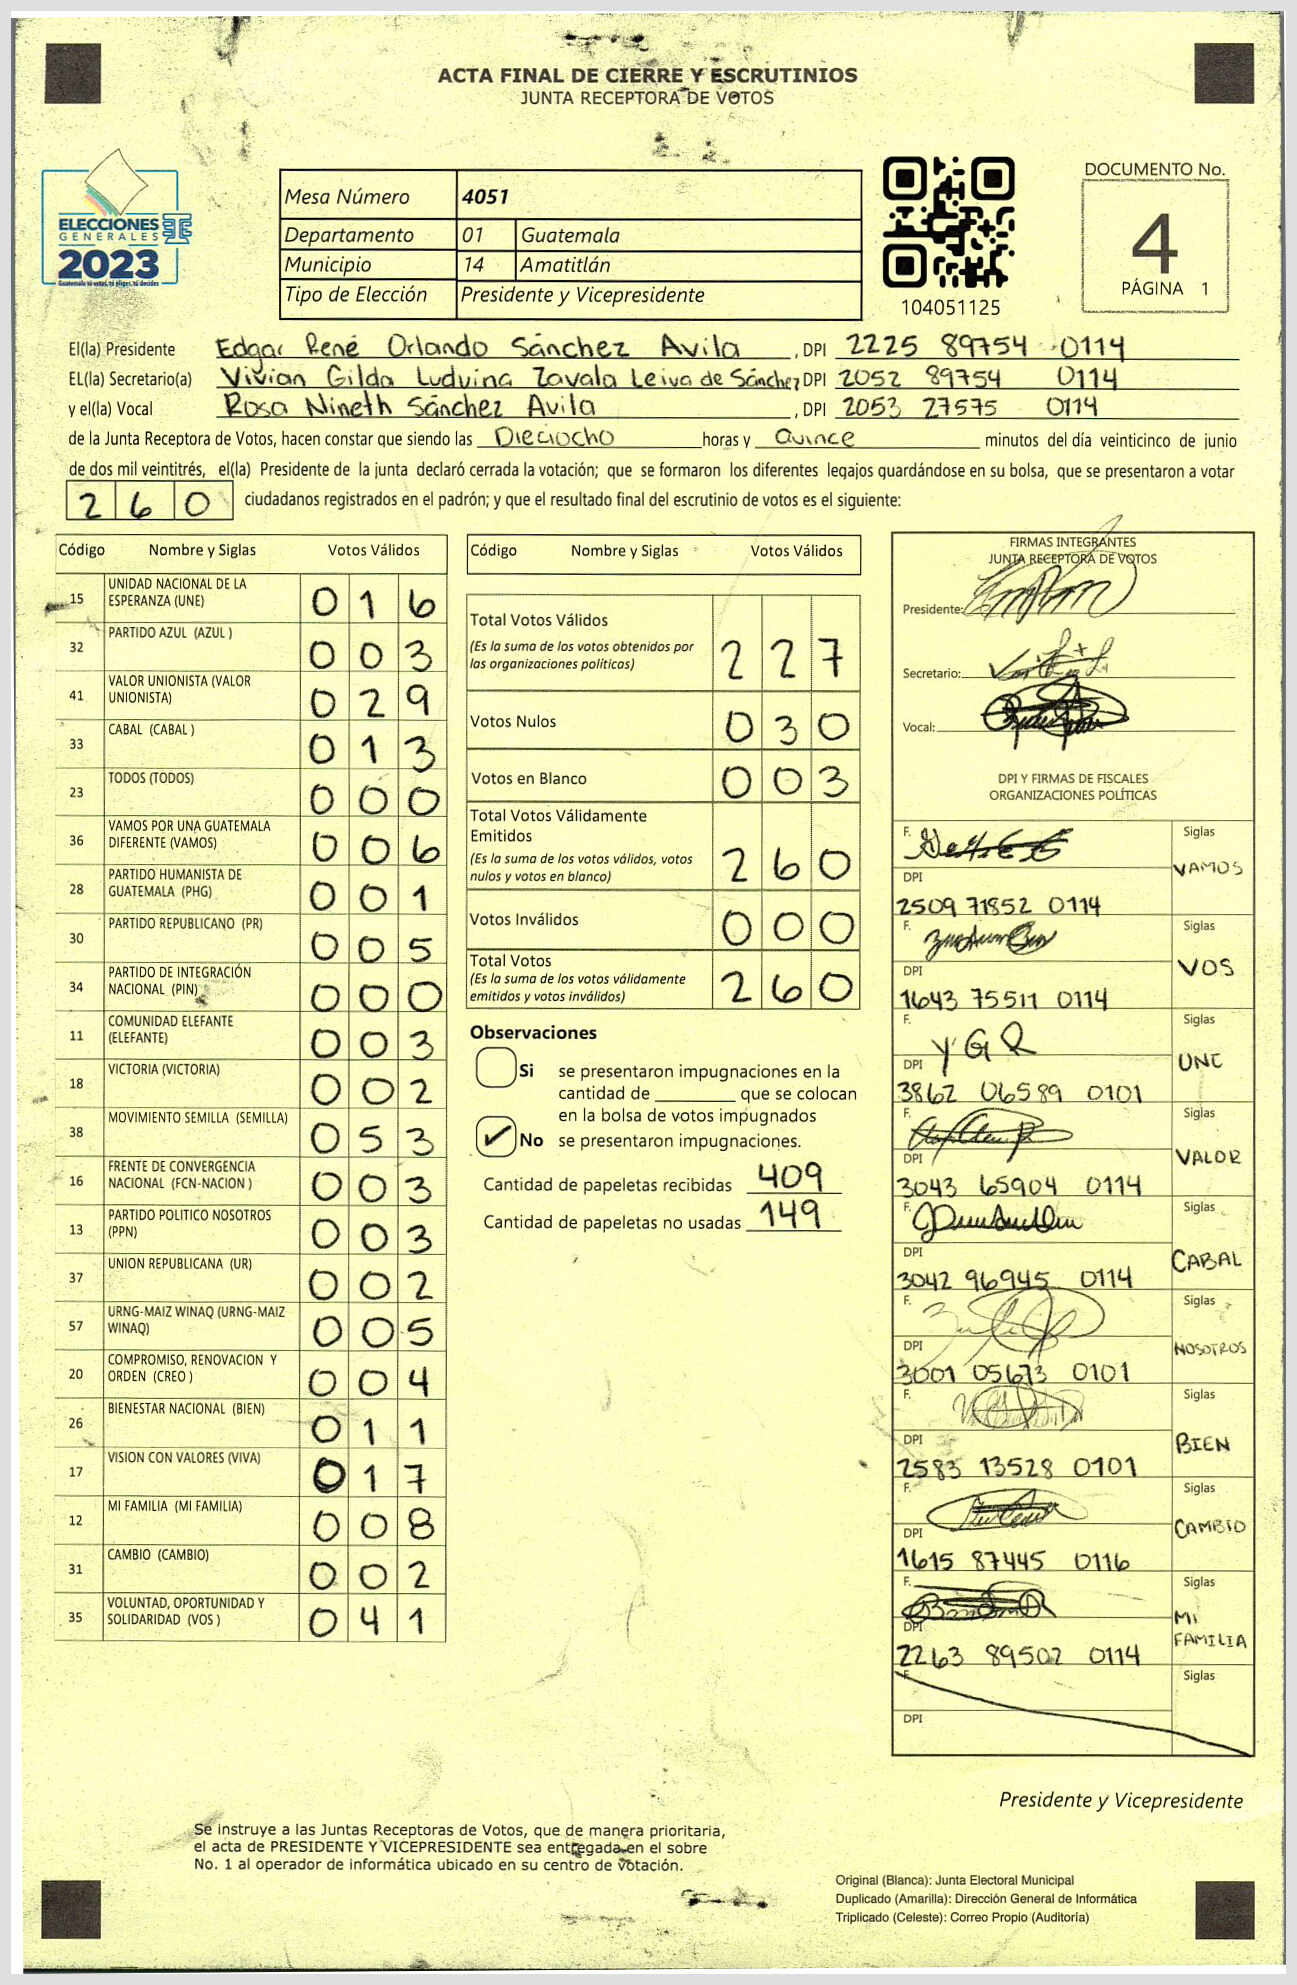 ACTA FINAL DE CIERRE Y ESCRUTINIOS
JUNTA RECEPTORA DE VOTOS
ELECCIONES
GENERALES
2023
Guatemala tú votas, tú eliges, tú decides
Mesa Número 4051
Departamento 01 Guatemala
Municipio 14 Amatitlán
Tipo de Elección Presidente y Vicepresidente
104051125
DOCUMENTO No.
4
PÁGINA 1
El(la) Presidente Edgar René Orlando Sánchez Avila , DPI 2225 89754 0114
EL(la) Secretario(a) Vivian Gilda Ludvina Zavala Leiva de Sánchez DPI 2052 89754 0114
y el(la) Vocal Rosa Nineth Sánchez Avila , DPI 2053 27575 0114
de la Junta Receptora de Votos, hacen constar que siendo las Dieciocho horas y Quince minutos del día veinticinco de junio
de dos mil veintitrés, el(la) Presidente de la junta declaró cerrada la votación; que se formaron los diferentes legajos guardándose en su bolsa, que se presentaron a votar
260 ciudadanos registrados en el padrón; y que el resultado final del escrutinio de votos es el siguiente:
Código Nombre y Siglas Votos Válidos
15 UNIDAD NACIONAL DE LA ESPERANZA (UNE) 016
32 PARTIDO AZUL (AZUL ) 003
41 VALOR UNIONISTA (VALOR UNIONISTA) 029
33 CABAL (CABAL ) 013
23 TODOS (TODOS) 000
36 VAMOS POR UNA GUATEMALA DIFERENTE (VAMOS) 006
28 PARTIDO HUMANISTA DE GUATEMALA (PHG) 001
30 PARTIDO REPUBLICANO (PR) 005
34 PARTIDO DE INTEGRACIÓN NACIONAL (PIN) 000
11 COMUNIDAD ELEFANTE (ELEFANTE) 003
18 VICTORIA (VICTORIA) 002
38 MOVIMIENTO SEMILLA (SEMILLA) 053
16 FRENTE DE CONVERGENCIA NACIONAL (FCN-NACION ) 003
13 PARTIDO POLITICO NOSOTROS (PPN) 003
37 UNION REPUBLICANA (UR) 002
57 URNG-MAIZ WINAQ (URNG-MAIZ WINAQ) 005
20 COMPROMISO, RENOVACION Y ORDEN (CREO ) 004
26 BIENESTAR NACIONAL (BIEN) 011
17 VISION CON VALORES (VIVA) 017
12 MI FAMILIA (MI FAMILIA) 008
31 CAMBIO (CAMBIO) 002
35 VOLUNTAD, OPORTUNIDAD Y SOLIDARIDAD (VOS ) 041
Código Nombre y Siglas Votos Válidos
Total Votos Válidos
(Es la suma de los votos obtenidos por
las organizaciones políticas) 227
Votos Nulos 030
Votos en Blanco 003
Total Votos Válidamente
Emitidos
(Es la suma de los votos válidos, votos
nulos y votos en blanco) 260
Votos Inválidos 000
Total Votos
(Es la suma de los votos válidamente
emitidos y votos inválidos) 260
Observaciones
Si se presentaron impugnaciones en la
cantidad de ________ que se colocan
en la bolsa de votos impugnados
No se presentaron impugnaciones.
Cantidad de papeletas recibidas 409
Cantidad de papeletas no usadas 149
FIRMAS INTEGRANTES
JUNTA RECEPTORA DE VOTOS
Presidente:
Secretario:
Vocal:
DPI Y FIRMAS DE FISCALES
ORGANIZACIONES POLÍTICAS
F. Siglas VAMOS
DPI 2509 71852 0114
F. Siglas VOS
DPI 1643 75511 0114
F. YGR Siglas UNE
DPI 3862 06589 0101
F. Siglas VALOR
DPI 3043 65904 0114
F. Siglas CABAL
DPI 3042 96945 0114
F. Siglas NOSOTROS
DPI 3001 05673 0101
F. Siglas BIEN
DPI 2583 13528 0101
F. Siglas CAMBIO
DPI 1615 87445 0116
F. Siglas MI FAMILIA
DPI 2263 89502 0114
F. Siglas
DPI
Presidente y Vicepresidente
Se instruye a las Juntas Receptoras de Votos, que de manera prioritaria,
el acta de PRESIDENTE Y VICEPRESIDENTE sea entregada en el sobre
No. 1 al operador de informática ubicado en su centro de votación.
Original (Blanca): Junta Electoral Municipal
Duplicado (Amarilla): Dirección General de Informática
Triplicado (Celeste): Correo Propio (Auditoría)